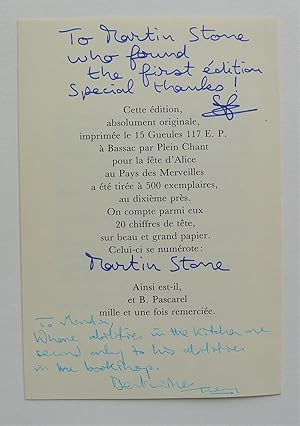 To Martin Stone
who found
the first édition
Special thanks!
Cette édition,
absolument originale,
imprimée le 15 Gueules 117 E. P.
à Bassac par Plein Chant
pour la fête d'Alice
au Pays des Merveilles
a été tirée à 500 exemplaires,
au dixième près.
On compte parmi eux
20 chiffres de tête,
sur beau et grand papier.
Celui-ci se numérote:
Martin Stone
Ainsi est-il,
et B. Pascarel
mille et une fois remerciée.
To Martin,
Whose abilities in the kitchen are
second only to his abilities
in the bookshop.
Best wishes